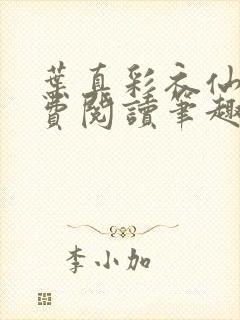 葉真彩衣仙
費閱讀筆趣
李小加